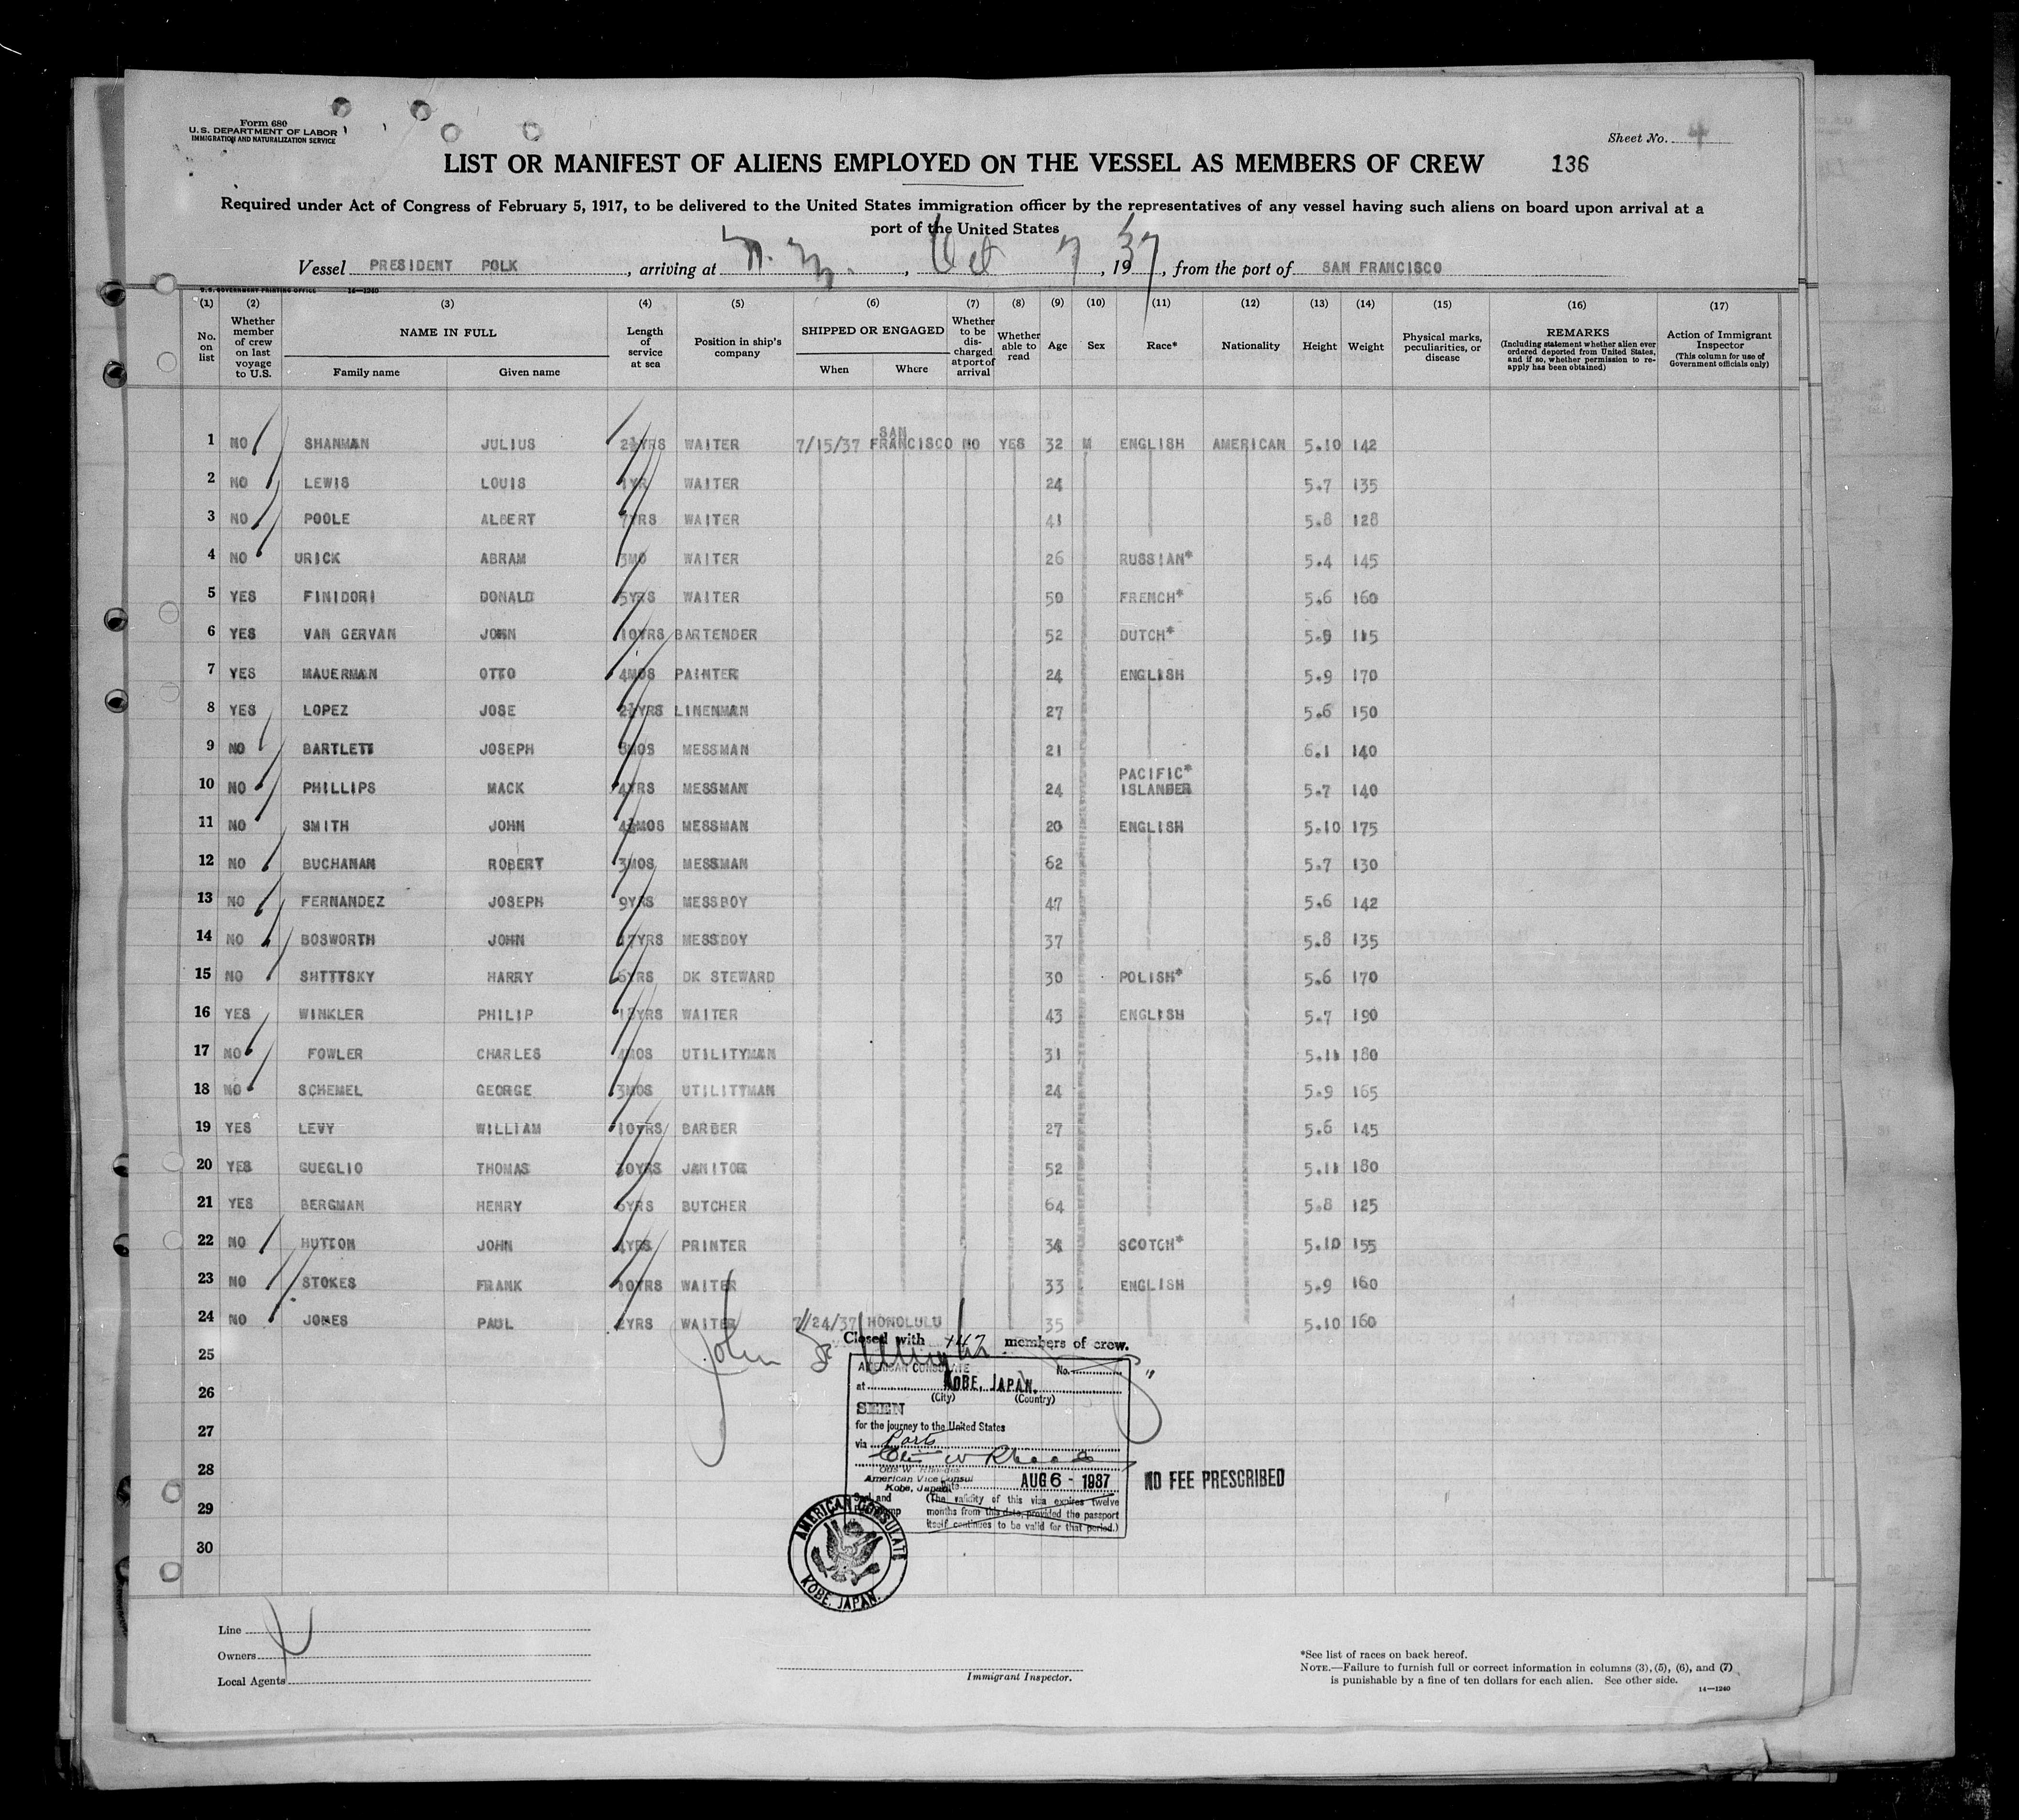 Form 680
U.S. DEPARTMENT OF LABOR
IMMIGRATION AND NATURALIZATION SERVICE
Sheet No. 4
LIST OR MANIFEST OF ALIENS EMPLOYED ON THE VESSEL AS MEMBERS OF CREW 136
Required under Act of Congress of February 5, 1917, to be delivered to the United States immigration officer by the representatives of any vessel having such aliens on board upon arrival at a
port of the United States
Vessel PRESIDENT POLK, arriving at N. Y., Oct 7, 1937, from the port of SAN FRANCISCO
U.S. GOVERNMENT PRINTING OFFICE 14—1240
(1) (2) (3) (4) (5) (6) (7) (8) (9) (10) (11) (12) (13) (14) (15) (16) (17)
No. on list
Whether member of crew on last voyage to U.S.
NAME IN FULL
Family name
Given name
Length of service at sea
Position in ship's company
SHIPPED OR ENGAGED
When
Where
Whether to be discharged at port of arrival
Whether able to read
Age
Sex
Race*
Nationality
Height
Weight
Physical marks, peculiarities, or disease
REMARKS
(Including statement whether alien ever ordered deported from United States, and if so, whether permission to reapply has been obtained)
Action of Immigrant Inspector
(This column for use of Government officials only)
1 NO SHANMAN JULIUS 2½YRS WAITER 7/15/37 SAN FRANCISCO NO YES 32 M ENGLISH AMERICAN 5.10 142
2 NO LEWIS LOUIS 1YR WAITER 24 5.7 135
3 NO POOLE ALBERT 7YRS WAITER 41 5.8 128
4 NO URICK ABRAM 3MO WAITER 26 RUSSIAN* 5.4 145
5 YES FINIDORI DONALD 5YRS WAITER 50 FRENCH* 5.6 160
6 YES VAN GERVAN JOHN 10YRS BARTENDER 52 DUTCH* 5.9 115
7 YES MAUERMAN OTTO 4MOS PAINTER 24 ENGLISH 5.9 170
8 YES LOPEZ JOSE 2½YRS LINENMAN 27 5.6 150
9 NO BARTLETT JOSEPH MESSMAN 21 6.1 140
10 NO PHILLIPS MACK 4YRS MESSMAN 24 PACIFIC* ISLANDER 5.7 140
11 NO SMITH JOHN 4½MOS MESSMAN 20 ENGLISH 5.10 175
12 NO BUCHANAN ROBERT 3MOS MESSMAN 62 5.7 130
13 NO FERNANDEZ JOSEPH 9YRS MESSBOY 47 5.6 142
14 NO BOSWORTH JOHN 17YRS MESSBOY 37 5.8 135
15 NO SHTTTSKY HARRY 6YRS DK STEWARD 30 POLISH* 5.6 170
16 YES WINKLER PHILIP WAITER 43 ENGLISH 5.7 190
17 NO FOWLER CHARLES 4MOS UTILITYMAN 31 5.11 180
18 NO SCHEMEL GEORGE 3MOS UTILITYMAN 24 5.9 165
19 YES LEVY WILLIAM 10YRS BARBER 27 5.6 145
20 YES GUEGLIO THOMAS JANITOR 52 5.11 180
21 YES BERGMAN HENRY BUTCHER 64 5.8 125
22 NO HUTTON JOHN 4YRS PRINTER 34 SCOTCH* 5.10 155
23 NO STOKES FRANK 10YRS WAITER 33 ENGLISH 5.9 160
24 NO JONES PAUL 2YRS WAITER 7/24/37 HONOLULU 35 5.10 160
25
26
27
28
29
30
Closed with 147 members of crew.
John
AMERICAN CONSULATE No.
at KOBE, JAPAN.
(City) (Country)
SEEN
for the journey to the United States
via Ports
Otis W Rhoades
Otis W. Rhoades
American Vice Consul
Kobe, Japan
Date AUG 6 - 1937
NO FEE PRESCRIBED
Seal and
(The validity of this visa expires twelve
months from this date, provided the passport
itself continues to be valid for that period.)
AMERICAN CONSULATE
KOBE, JAPAN.
Line
Owners
Local Agents
Immigrant Inspector.
*See list of races on back hereof.
NOTE.—Failure to furnish full or correct information in columns (3), (5), (6), and (7)
is punishable by a fine of ten dollars for each alien. See other side.
14—1240